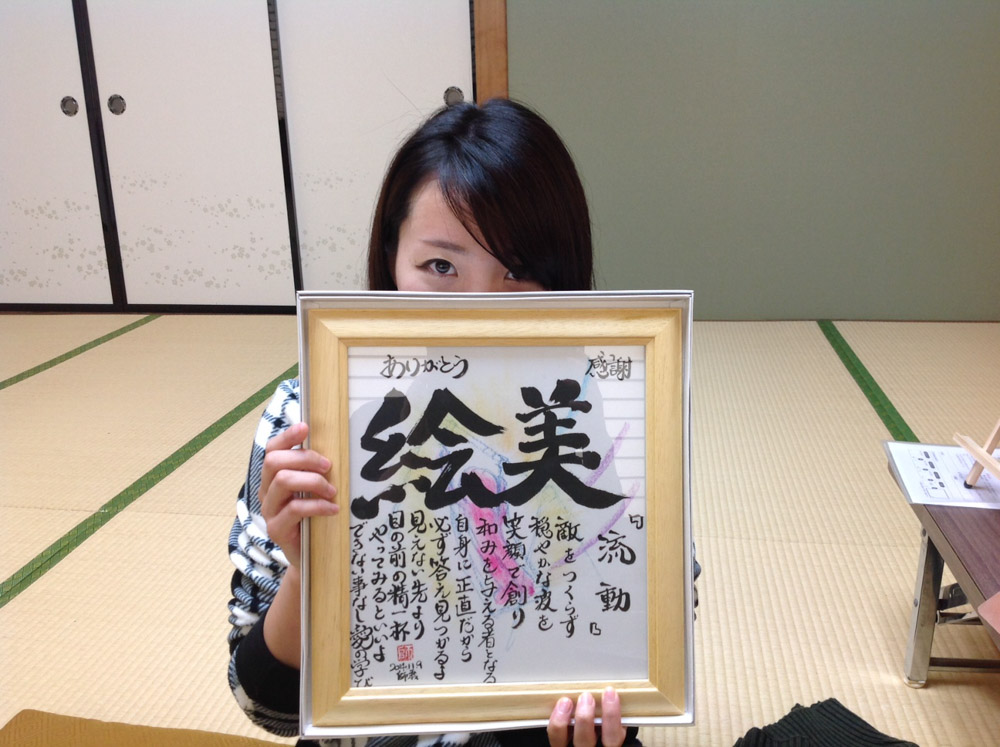 感謝
ありがとう
美絵
『流動』
敵をつくらず
穏やかな波を
笑顔で創り
和みを与える者となる
自身に正直だから
必ず答え見つかるよ
見えない先より
目の前の精一杯
やってみるといいよ
できない事なし愛の学び